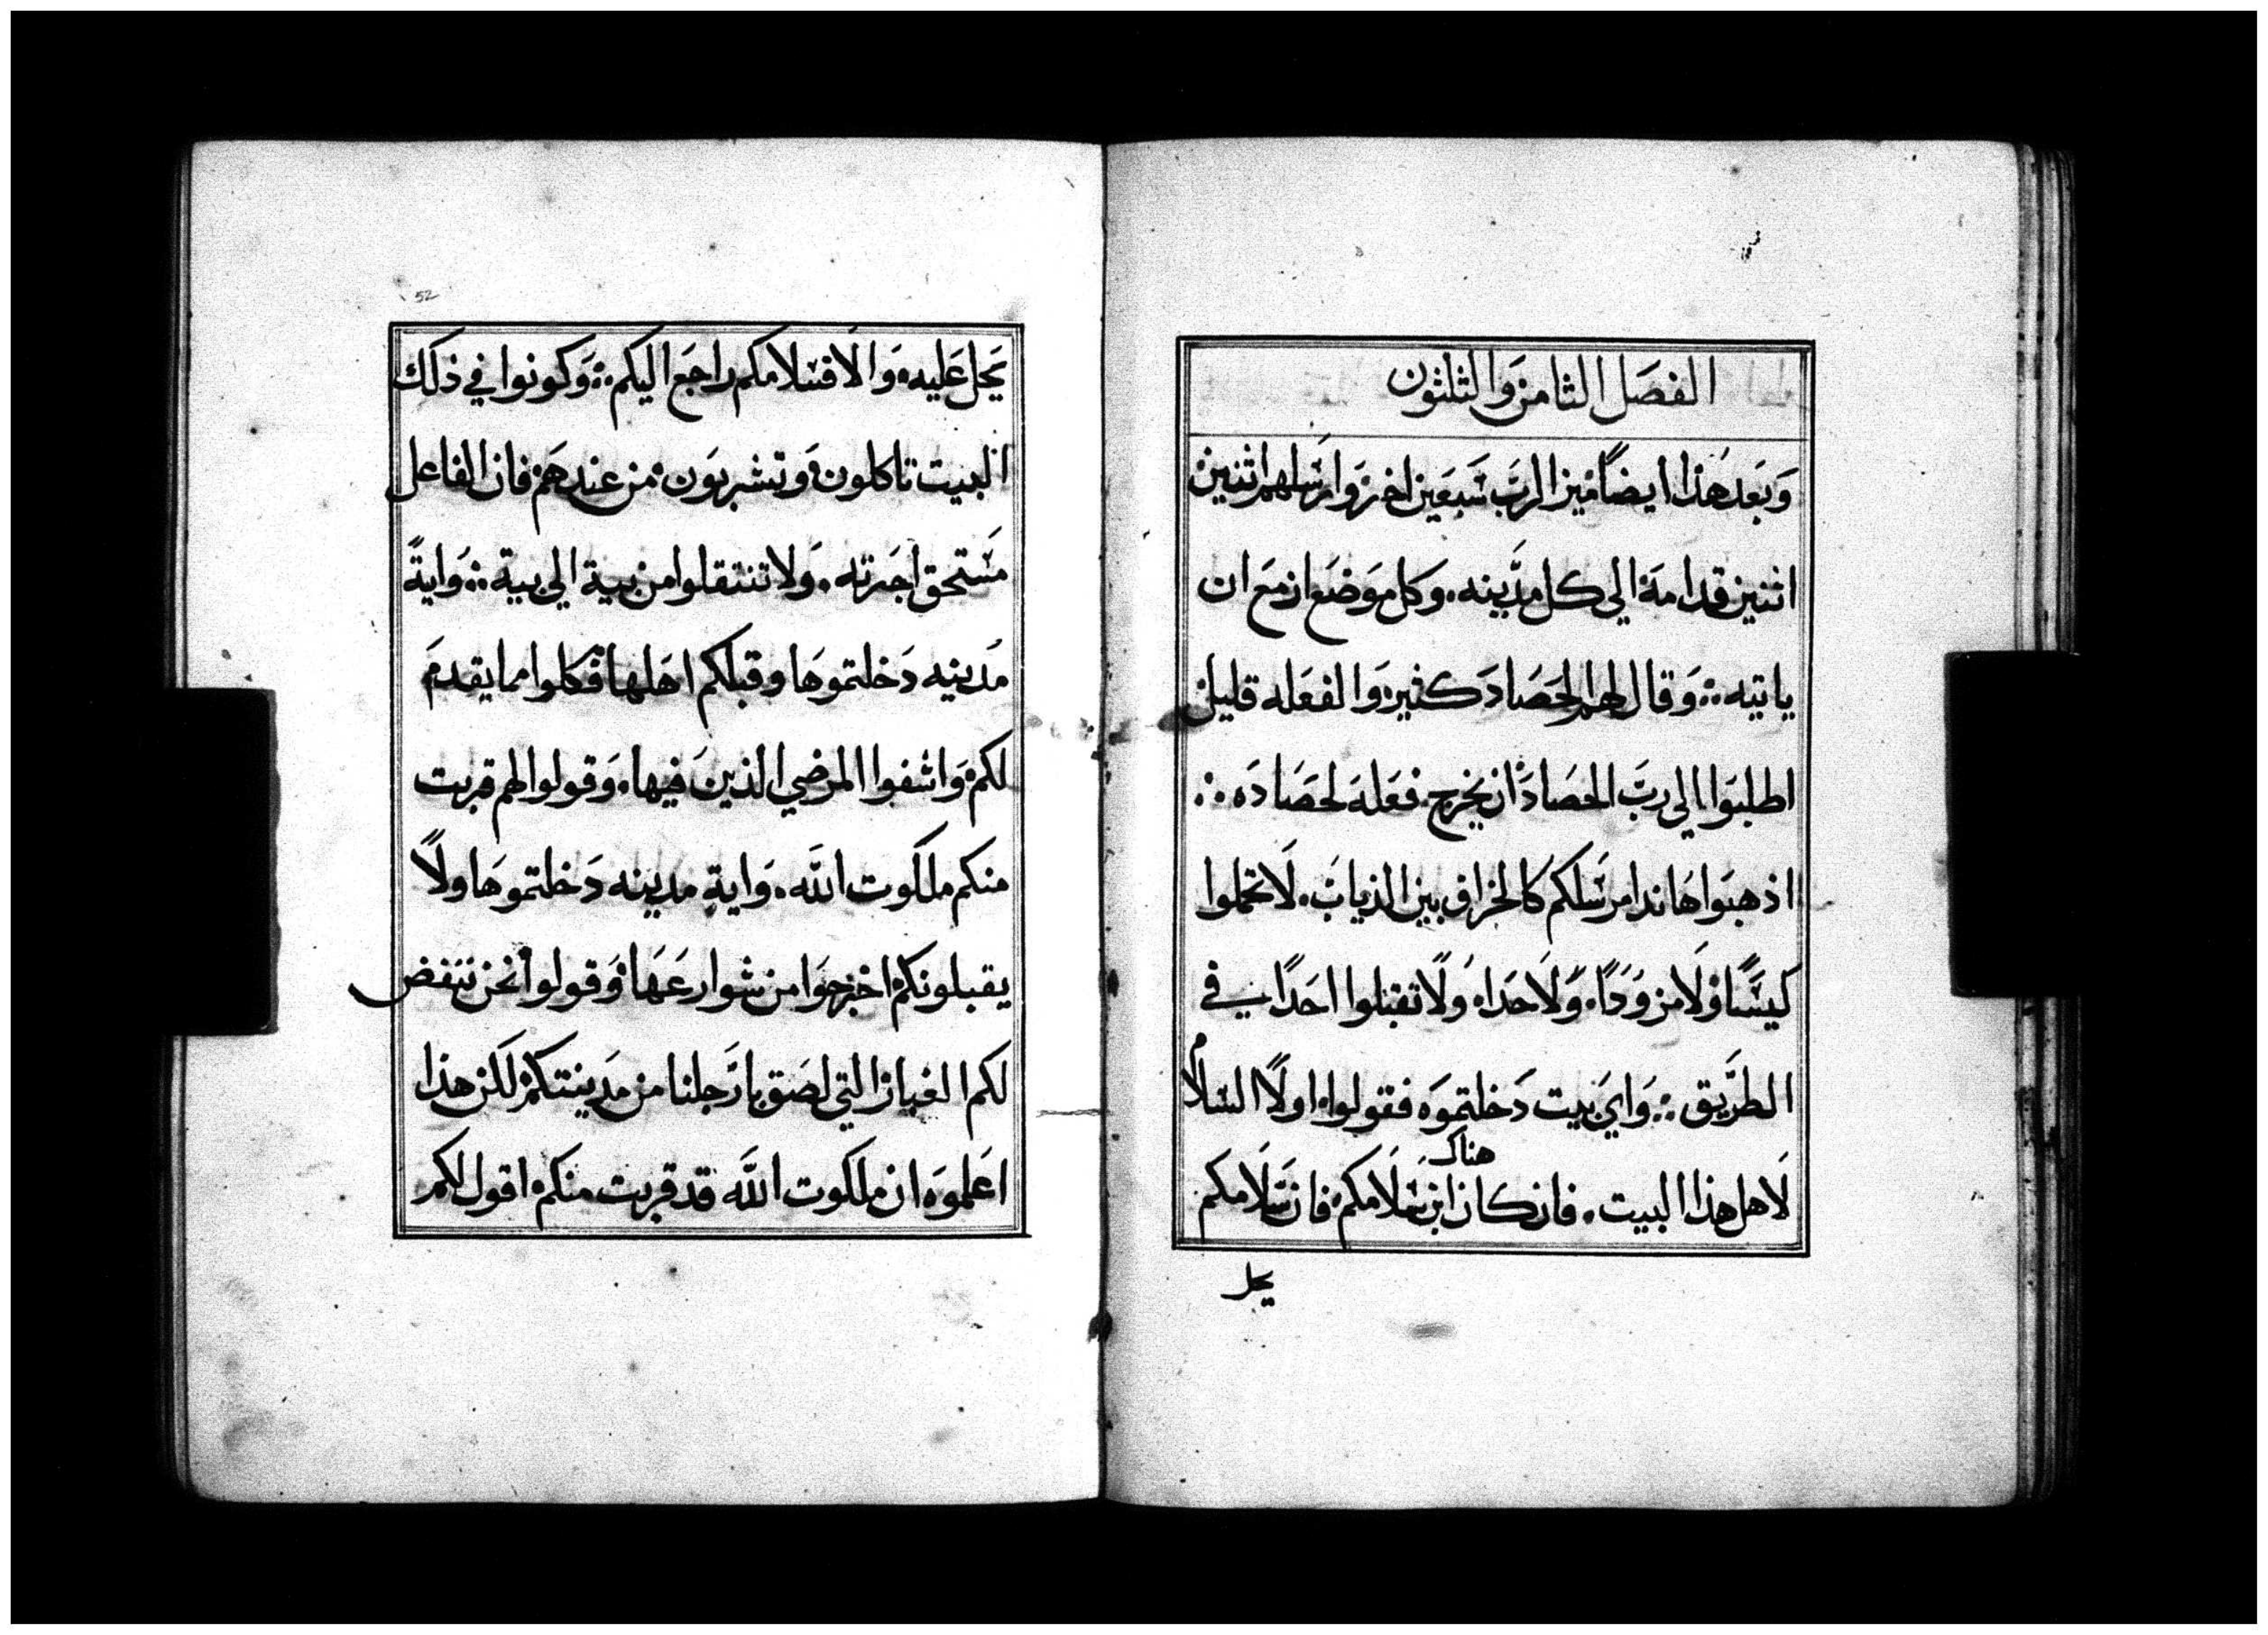 الفصل الثامن والثلثون
وَبَعدَ هَذا ايضاً ميز الربَّ سَبَعين اخر وارسَلهم اثنين
اثنين قدامهَ الي كل مدَينه. وكل موَضَع ازمَع ان
ياتيه ∴ وَقال لهم الحَصَادَ كثير وَالفعَله قليل
اطلبَوا الي ربَّ الحصَادَ ان يخرج فعَلهَ لحصَادَه ∴
اذهبَوا هَاندا مرسَلكم كالخراف بين الذيابَ. لَا تحملوا
كيسًا وَلَا مزوَدًا. وَلَا حذا. وَلَا تقبلوا احَدًا في
الطرَيق ∴ وَاي بَيت دَخلتموَه فقولوا اولًا السَلام
لَاهل هذا البيت. فان كان هناك ابن سَلَامكم فان سَلَامكم
يحل
52
يَحل عَليه. وَالا فسَلامكم راجَع اليكم ∴ وَكونوا في ذلك
البيت تاكلون وَتشربَون من عندهَم فان الفاعل
مسَتحق اجَرته. وَلا تنتقلوا من بية الي بية ∴ وَايةً
مدَينه دَخلتموهَا وقبلكم اهَلهاَ فكلوا مما يقدمَ
لكم وَاشفوا المرضي الذينَ فيها. وَقولوا لهم قربت
منكم ملكوت اللَه. وَايةِ مدينه دَخلتموهَا ولًا
يقبلونكم اخرجوَا من شوارعَهَا وَقولوا نحن ننفض
لكم الغبار التي لصَق بارَجلنا من مدَينتكم لَكن هذا
اعَلموَه ان ملكوت اللَه قد قربت منكم اقول لكم